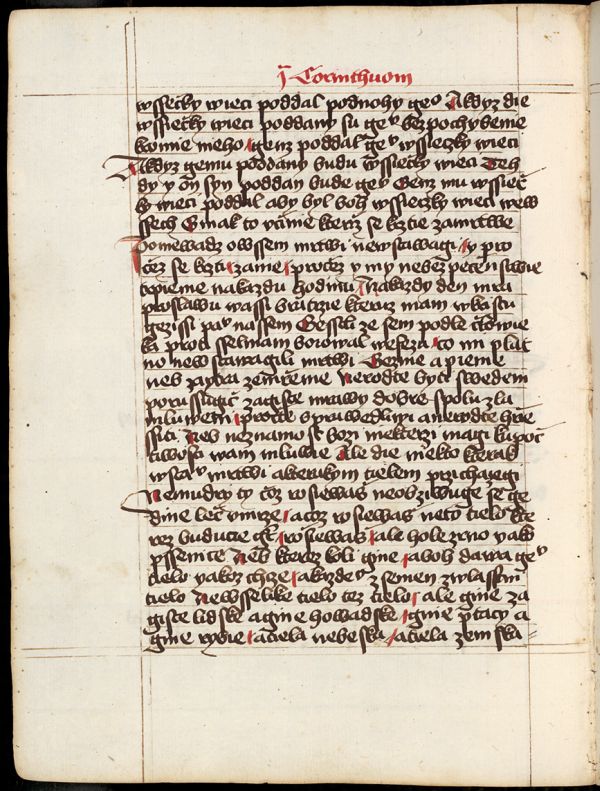 j Corinthuom
wssecky wieci poddal podnohy geº A kdyz die
wssiecky wieci poddany su geº bez pochybenie
kromie neho genz poddal geº wssieczky wieci
A kdyz gemu poddany budu wssiecky wieci Teh
dy y on syn poddan bude geº Genz mu wssiec
ky wieci poddal aby byl boh wssieczky wieci wew
ssech Ginak to vcinie kteriz se krztie zamrtwe
Poniewadz owssem mrtwi newstawagi y pro
cez se krztie zanie procez y my nebezpecenstwie
trpieme nakazdu hodinu Nakazdy den mru
proslawu wassi bratrzie kteruz mam wkristu
gezissi panu nassem Gestli ze sem podle clowie
ka proti sselmam borowal wefezu co mi plat
no newstawagili mrtwi Gezme a pieme
neb zaytra zemreme Nerodte byti swedeni
porussugic zagiste mrawy dobre spolu zla
mluweni procitte sprawedliwi anerodte hrze
ssiti Neb neznamost bozi niekterzi magi kupoc
tiwosti wam mluwie Ale die niekto kterak
wstanu mrtwi akterakym tielem przichazegi
Nemudry ty coz rosiewas neobziwuge se ge
dine lec vmrze acoz rosiewas neto tielo kte
rez buduci gest rosiewas ale hole zrno yako
pssenice Neb kterez koli gine aboh dawa geº
tielo yakoz chze akazdeº z semen zwlasstni
tielo Newselike tielo tez tielo ale gine za
giste lidske agine howadske gine ptacy a
gine rybie atiela nebeska atiela zemska